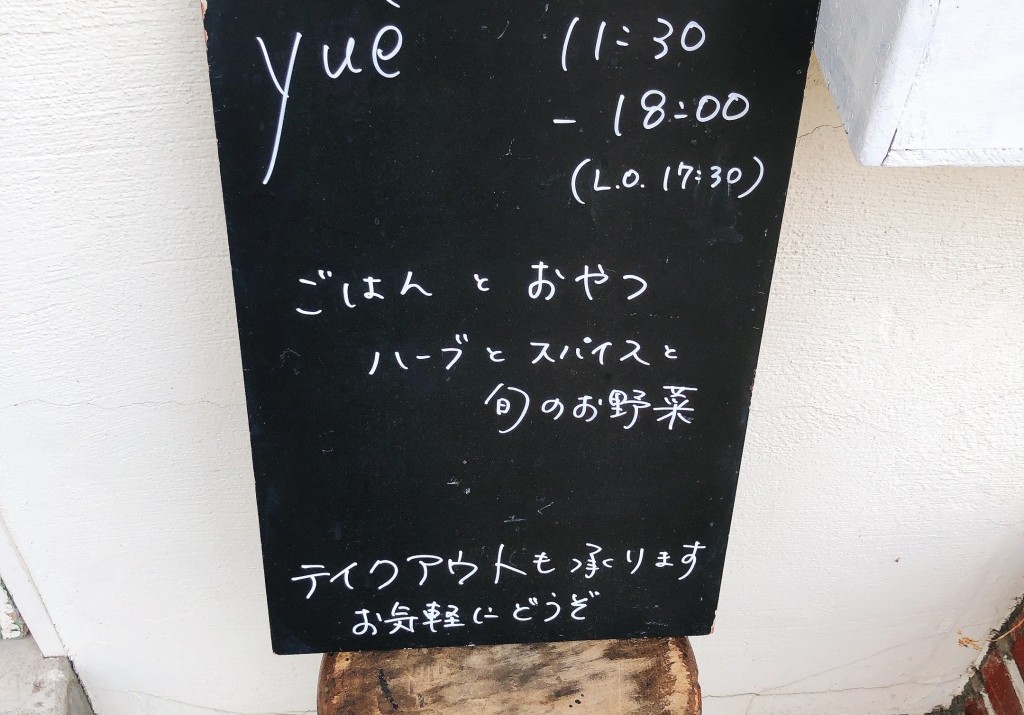 yuè
11:30
- 18:00
(L.O. 17:30)
ごはん と おやつ
ハーブと スパイスと
旬のお野菜
テイクアウトも承ります
お気軽にどうぞ